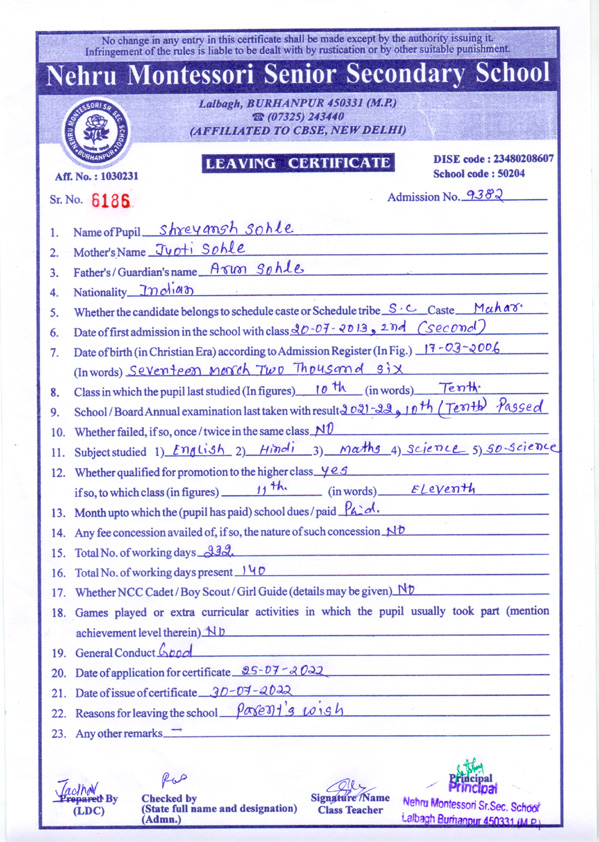 No change in any entry in this certificate shall be made except by the authority issuing it.
Infringement of the rules is liable to be dealt with by rustication or by other suitable punishment.
Nehru Montessori Senior Secondary School
NEHRU MONTESSORI SR. SEC. SCHOOL
BURHANPUR
Lalbagh, BURHANPUR 450331 (M.P.)
☎ (07325) 243440
(AFFILIATED TO CBSE, NEW DELHI)
LEAVING CERTIFICATE
DISE code : 23480208607
School code : 50204
Aff. No. : 1030231
Sr. No. 6186
Admission No. 9382
1. Name of Pupil Shreyansh Sohle
2. Mother's Name Jyoti Sohle
3. Father's / Guardian's name Arun Sohle
4. Nationality Indian
5. Whether the candidate belongs to schedule caste or Schedule tribe S.C Caste Mahar.
6. Date of first admission in the school with class 20-07-2013, 2nd (second)
7. Date of birth (in Christian Era) according to Admission Register (In Fig.) 17-03-2006
(In words) Seventeen March Two Thousand Six
8. Class in which the pupil last studied (In figures) 10th (in words) Tenth.
9. School / Board Annual examination last taken with result 2021-22, 10th (Tenth) Passed
10. Whether failed, if so, once / twice in the same class No
11. Subject studied 1) English 2) Hindi 3) Maths 4) Science 5) So-Science
12. Whether qualified for promotion to the higher class yes
if so, to which class (in figures) 11th. (in words) Eleventh
13. Month upto which the (pupil has paid) school dues / paid Paid.
14. Any fee concession availed of, if so, the nature of such concession No
15. Total No. of working days 232
16. Total No. of working days present 140
17. Whether NCC Cadet / Boy Scout / Girl Guide (details may be given) No
18. Games played or extra curricular activities in which the pupil usually took part (mention
achievement level therein) No
19. General Conduct Good
20. Date of application for certificate 25-07-2022
21. Date of issue of certificate 30-07-2022
22. Reasons for leaving the school Parent's wish
23. Any other remarks —
Jadhav
Prepared By
(LDC)
Checked by
(State full name and designation)
(Admn.)
Signature /Name
Class Teacher
Principal
Principal
Nehru Montessori Sr.Sec. School
Lalbagh Burhanpur 450331 (M.P.)